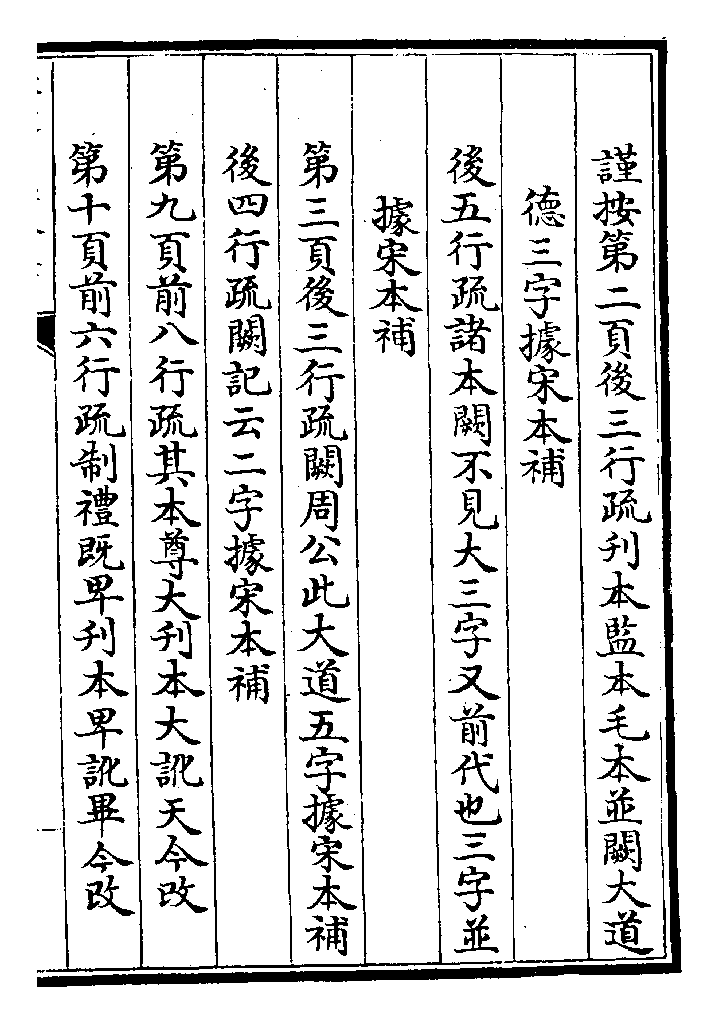 謹按第二頁後三行疏刋本監本毛本並闕大道
德三字據宋本補
後五行疏諸本闕不見大三字又前代也三字並
據宋本補
第三頁後三行疏闕周公此大道五字據宋本補
後四行疏闕記云二字據宋本補
第九頁前八行疏其本尊大刋本大訛天今改
第十頁前六行疏制禮既畢刋本畢訛畢今改